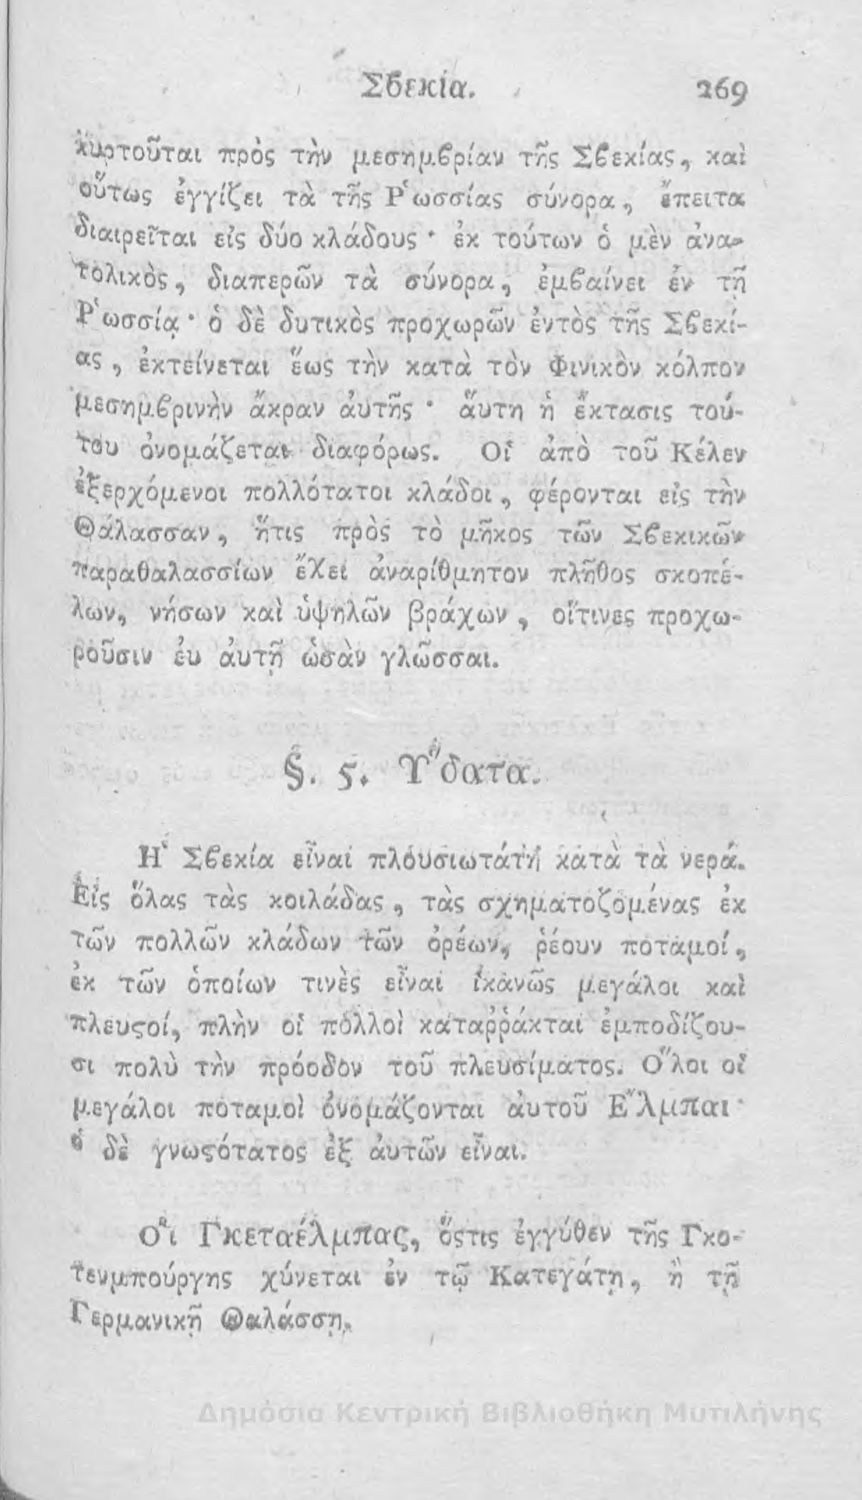 Σϐεκία. 269
κυρτοῦται πρὸς τὴν μεσημϐρίαν τῆς Σϐεκίας, καὶ
οὕτως ἐγγίζει τὰ τῆς Ῥωσσίας σύνορα, ἔπειτα
διαιρεῖται εἰς δύο κλάδους · ἐκ τούτων ὁ μὲν ἀνα-
τολικὸς, διαπερῶν τὰ σύνορα, ἐμϐαίνει ἐν τῇ
Ῥωσσίᾳ · ὁ δὲ δυτικὸς προχωρῶν ἐντὸς τῆς Σϐεκί-
ας, ἐκτείνεται ἕως τὴν κατὰ τὸν Φινικὸν κόλπον
μεσημϐρινὴν ἄκραν ἀυτῆς · ἅυτη ἡ ἔκτασις τού-
του ὀνομάζεται διαφόρως. Οἱ ἀπὸ τοῦ Κέλεν
ἐξερχόμενοι πολλότατοι κλάδοι, φέρονται εἰς τὴν
Θάλασσαν, ἥτις πρὸς τὸ μῆκος τῶν Σϐεκικῶν
παραθαλασσίων ἔχει ἀναρίθμητον πλῆθος σκοπέ-
λων, νήσων καὶ ὑψηλῶν βράχων, οἵτινες προχω-
ροῦσιν ἐυ ἀυτῇ ὡσὰν γλῶσσαι.
§. 5. Ὕδατα.
Ἡ Σϐεκία εἶναι πλουσιωτάτη κατὰ τὰ νερά.
Εἰς ὅλας τὰς κοιλάδας, τὰς σχηματοζομένας ἐκ
τῶν πολλῶν κλάδων τῶν ὀρέων, ῥέουν ποταμοί,
ἐκ τῶν ὁποίων τινὲς εἶναι ἱκανῶς μεγάλοι καὶ
πλευϛοί, πλὴν οἱ πολλοὶ καταῤῥάκται ἐμποδίζου-
σι πολὺ τὴν πρόοδον τοῦ πλευσίματος. Ὅλοι οἱ
μεγάλοι ποταμοὶ ὀνομάζονται ἀυτοῦ Ἔλμπαι ·
ὁ δὲ γνωϛότατος ἐξ ἀυτῶν εἶναι.
Οἱ Γκεταέλμπας, ὅϛις ἐγγύθεν τῆς Γκο-
τενμπούργης χύνεται ἐν τῷ Κατεγάτῃ, ἢ τῇ
Γερμανικῇ Θαλάσσῃ.
Δημόσια Κεντρική Βιβλιοθήκη Μυτιλήνης